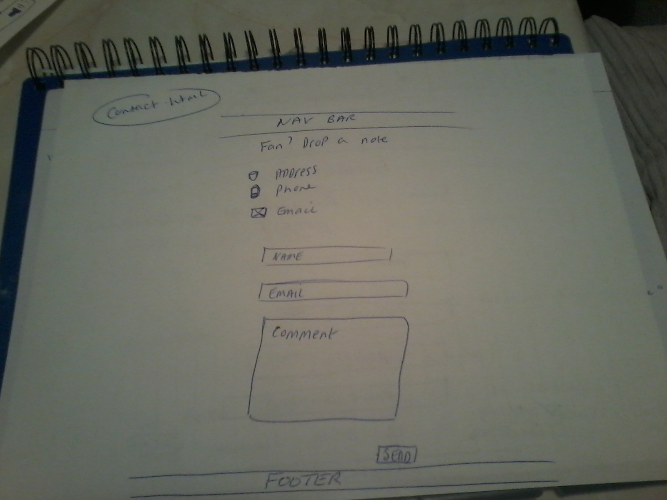 Contact html
NAV BAR
Fan? Drop a note
ADDRESS
Phone
Email
NAME
EMAIL
Comment
SEND
FOOTER